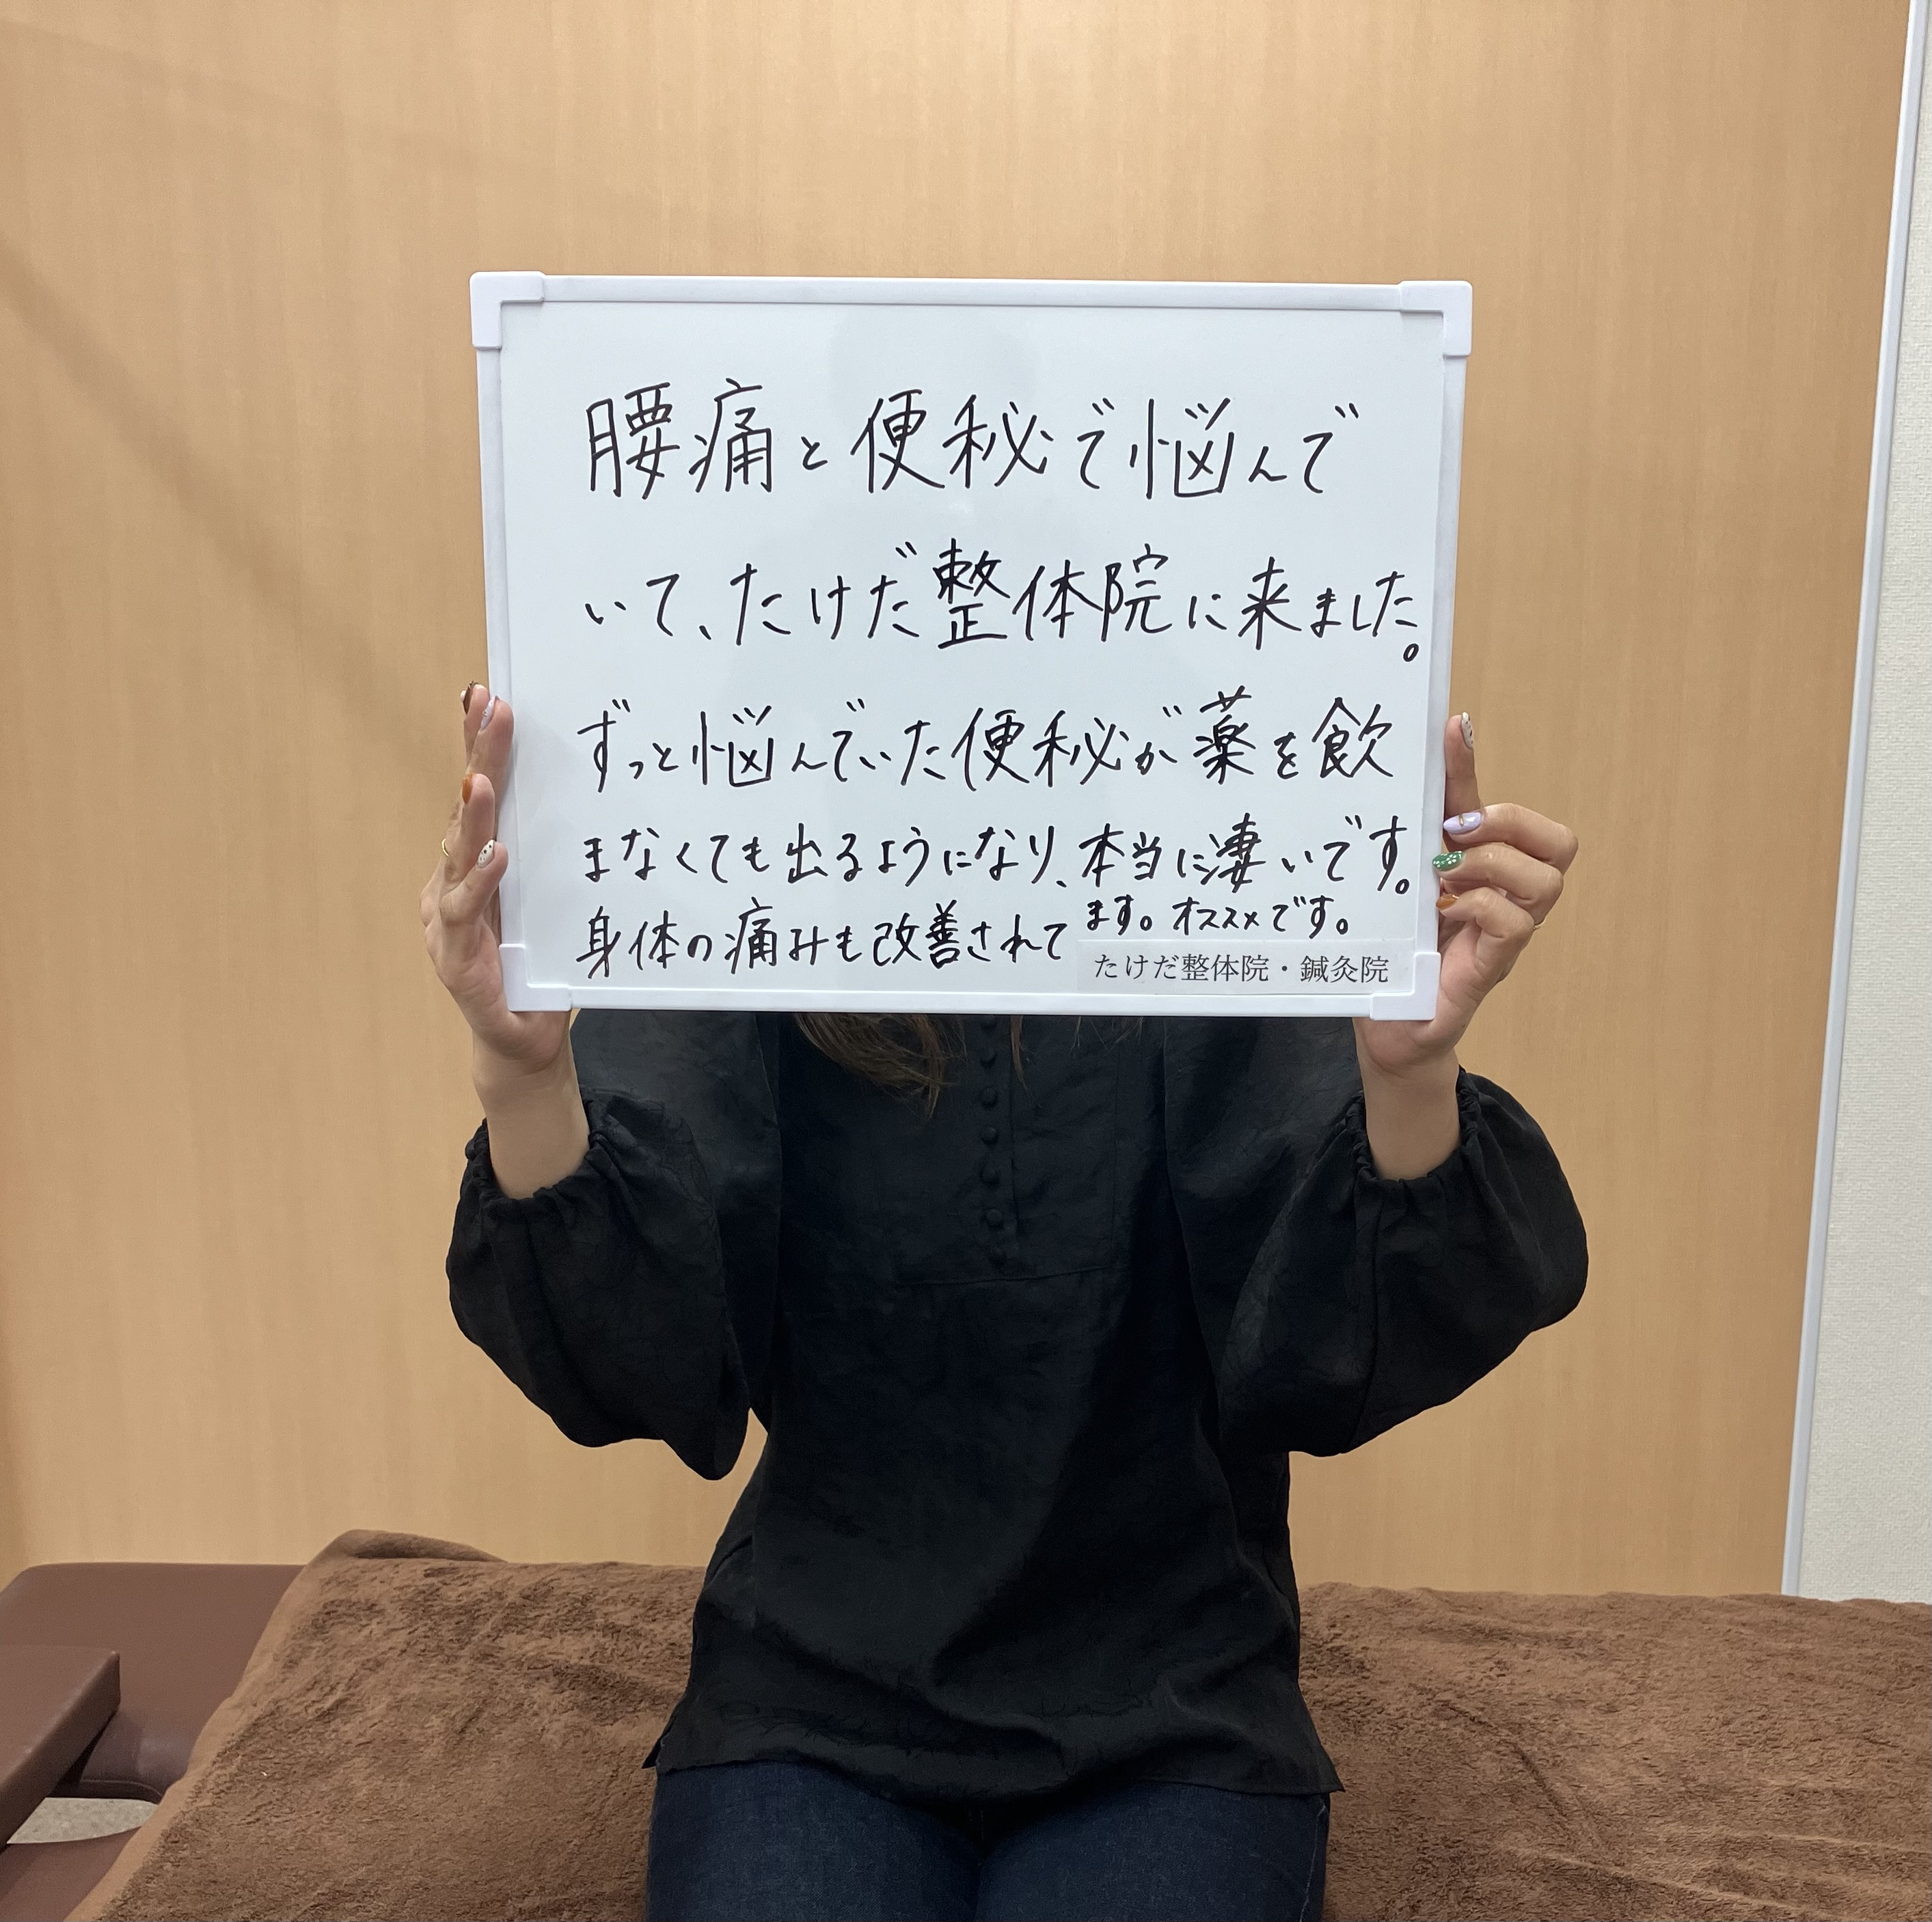 腰痛と便秘で悩んで
いて、たけだ整体院に来ました。
ずっと悩んでいた便秘が薬を飲
まなくても出るようになり、本当に凄いです。
身体の痛みも改善されて
ます。オススメです。
たけだ整体院・鍼灸院